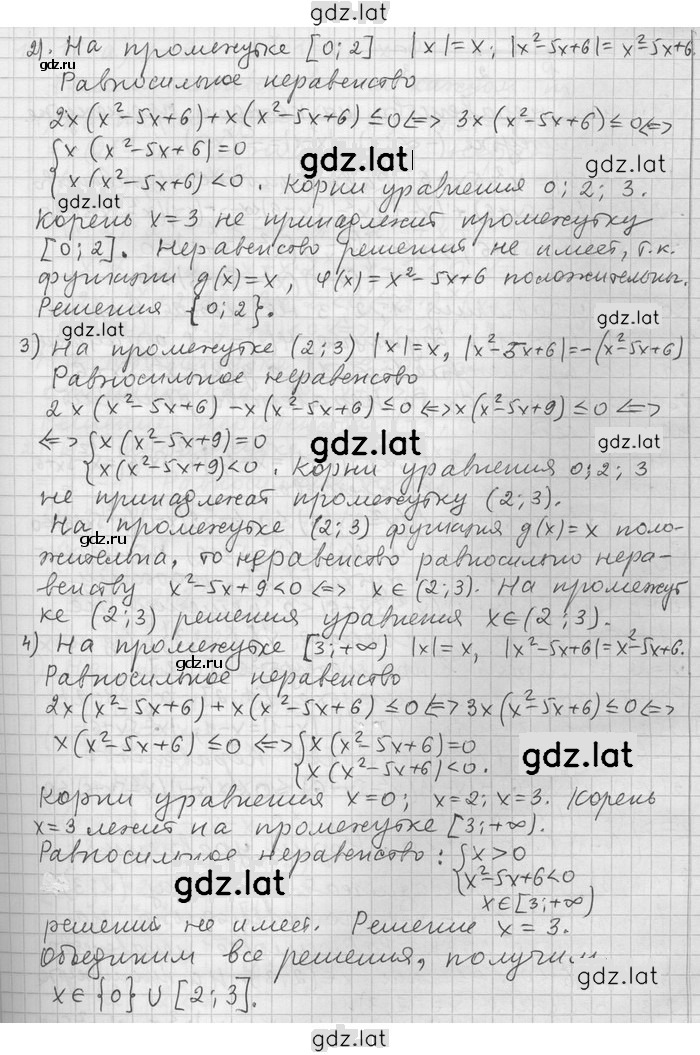 gdz.lat
2). На промежутке [0; 2] |x| = x; |x²-5x+6| = x²-5x+6.
gdz.ru
Равносильное неравенство
2x(x²-5x+6)+x(x²-5x+6) ≤0 <=> 3x(x²-5x+6) ≤0 <=>
{x(x²-5x+6|=0
{x(x²-5x+6)<0. Корни уравнения 0; 2; 3.
gdz.lat
gdz.lat
Корень x=3 не принадлежит промежутку
[0; 2]. Неравенство решений не имеет, т.к.
функции g(x)=x, φ(x)=x²-5x+6 положительны.
Решения {0; 2}.
gdz.lat
gdz.lat
3) На промежутке (2; 3) |x|=x, |x²-5x+6|=-(x²-5x+6)
Равносильное неравенство
2x(x²-5x+6)-x(x²-5x+6) ≤0 <=> x(x²-5x+9) ≤0 <=>
<=> {x(x²-5x+9)=0
{x(x²-5x+9)<0. Корни уравнения 0; 2; 3
gdz.lat
не принадлежат промежутку (2; 3).
На промежутке (2; 3) функция g(x)=x поло-
жительна, то неравенство равносильно нера-
венству x²-5x+9<0 <=> x∈(2; 3). На промежут
ке (2; 3) решения уравнения x∈(2; 3).
4) На промежутке [3; +∞) |x|=x, |x²-5x+6|=x²-5x+6.
gdz.ru
Равносильное неравенство
2x(x²-5x+6)+x(x²-5x+6) ≤0 <=> 3x(x²-5x+6) <=>
x(x²-5x+6) ≤0 <=> {x(x²-5x+6)=0
{x(x²-5x+6)<0.
gdz.lat
Корни уравнения x=0; x=2; x=3. Корень
x=3 лежит на промежутке [3; +∞).
Равносильное неравенство: {x>0
{x²-5x+6<0
x∈[3; +∞)
gdz.lat
решений не имеет. Решение x=3.
Объединим все решения, получим
gdz.lat
x∈{0}∪[2; 3].
gdz.lat